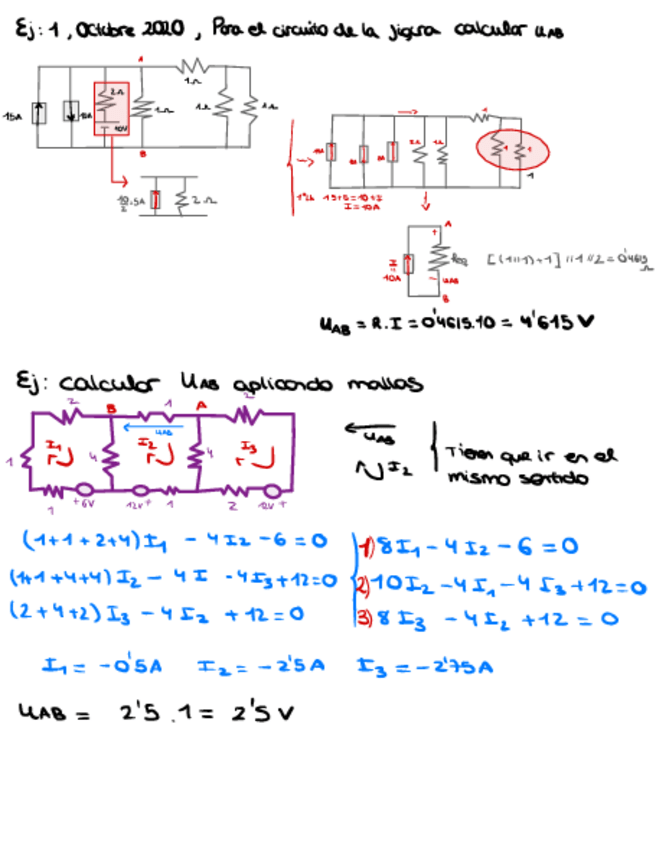 Ej: 1, Octubre 2020, Para el circuito de la figura calcular UAB
A
1Ω
15A
2Ω
10V
1Ω
B
10/2 = 5A
2Ω
1ªLk 15+5=10+I
I=10A
A
+
I
10A
Req
UAB
-
B
[(1//1)+1] //1//2 = 0'4615 Ω
UAB = R.I = 0'4615.10 = 4'615 V
Ej: calcular UAB aplicando mallas
2 B 1 A 2
UAB
1 I1 4 I2 4 I3
1 +6V 12V+ 1 2 12V+
UAB
I2
Tienen que ir en el
mismo sentido
(1+1+2+4)I1 - 4I2 - 6 = 0
(1+1+4+4)I2 - 4I - 4I3 + 12 = 0
(2+4+2)I3 - 4I2 + 12 = 0
1) 8I1 - 4I2 - 6 = 0
2) 10I2 - 4I1 - 4I3 + 12 = 0
3) 8I3 - 4I2 + 12 = 0
I1 = -0'5A I2 = -2'5A I3 = -2'75A
UAB = 2'5 . 1 = 2'5 V